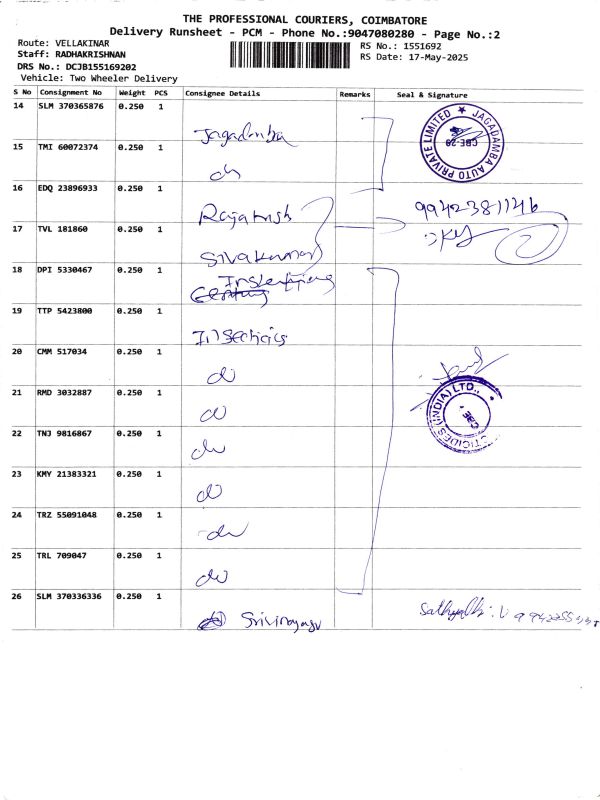 THE PROFESSIONAL COURIERS, COIMBATORE
Delivery Runsheet - PCM - Phone No.:9047080280 - Page No.:2
Route: VELLAKINAR
RS No.: 1551692
Staff: RADHAKRISHNAN
RS Date: 17-May-2025
DRS No.: DCJB155169202
Vehicle: Two Wheeler Delivery
S No Consignment No Weight PCS Consignee Details Remarks Seal & Signature
14 SLM 370365876 0.250 1 Jagadamba
JAGADAMBA AUTO PRIVATE LIMITED ★ CBE-29
15 TMI 60072374 0.250 1 do
16 EDQ 23896933 0.250 1 Rajakrish 9942381146
17 TVL 181860 0.250 1 Sivakumar
18 DPI 5330467 0.250 1
19 TTP 5423800 0.250 1 Insecticides
20 CMM 517034 0.250 1 do
21 RMD 3032887 0.250 1 do
(INDIA) LTD.
CBE
22 TNJ 9816867 0.250 1 do
23 KMY 21383321 0.250 1 do
24 TRZ 55091048 0.250 1 do
25 TRL 709047 0.250 1 do
26 SLM 370336336 0.250 1 Srivinayaga